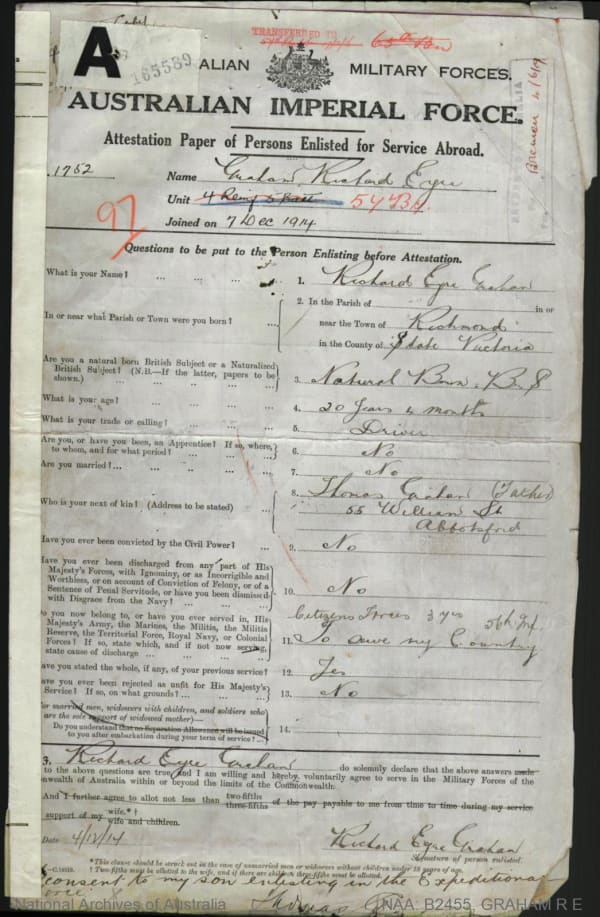 A
165589
TRANSFERRED TO
65th Bn
ALIAN MILITARY FORCES.
AUSTRALIAN IMPERIAL FORCE.
Attestation Paper of Persons Enlisted for Service Abroad.
1752
Name Graham, Richard Eyre
Unit 4 Reinf 5 Batt 57 Bn.
97
Joined on 7 Dec 1914
Questions to be put to the Person Enlisting before Attestation.
What is your Name? ... 1. Richard Eyre Graham
In or near what Parish or Town were you born? ... 2. In the Parish of in or
near the Town of Richmond
in the County of State Victoria
Are you a natural born British Subject or a Naturalized
British Subject? (N.B.—If the latter, papers to be
shown.) 3. Natural Born. B. S
What is your age? 4. 20 Years 4 months
What is your trade or calling? 5. Driver
Are you, or have you been, an Apprentice? If so, where,
to whom, and for what period? 6. No
Are you married? 7. No
Who is your next of kin? (Address to be stated) 8. Thomas Graham (Father)
55 William St
Abbotsford
Have you ever been convicted by the Civil Power? 9. No
Have you ever been discharged from any part of His
Majesty's Forces, with Ignominy, or as Incorrigible and
Worthless, or on account of Conviction of Felony, or of a
Sentence of Penal Servitude, or have you been dismissed
with Disgrace from the Navy? 10. No
you now belong to, or have you ever served in, His
Majesty's Army, the Marines, the Militia, the Militia
Reserve, the Territorial Force, Royal Navy, or Colonial
Forces? If so, state which, and if not now serving,
state cause of discharge 11. Citizens Forces 3 yrs 56th Inf
To my Country
ave you stated the whole, if any, of your previous service? 12. Yes
ave you ever been rejected as unfit for His Majesty's
Service? If so, on what grounds? 13. No
or married men, widowers with children, and soldiers who
are the sole support of widowed mother)—
Do you understand that no Separation Allowance will be issued
to you after embarkation during your term of service? 14.
3, Richard Eyre Graham do solemnly declare that the above answers made
to the above questions are true, and I am willing and hereby voluntarily agree to serve in the Military Forces of the
nwealth of Australia within or beyond the limits of the Commonwealth.
And I further agree to allot not less than two-fifths three-fifths of the pay payable to me from time to time during my service
support of my wife.*† wife and children.
Date 4/12/14 Richard Eyre Graham
Signature of person enlisted.
*This clause should be struck out in the case of unmarried men or widowers without children under 18 years of age.
† Two-fifths must be allotted to the wife, and if there are children three-fifths must be allotted.
consent to my son enlisting in the Expeditiona
orce. Thomas
National Archives of Australia NAA: B2455, GRAHAM R E